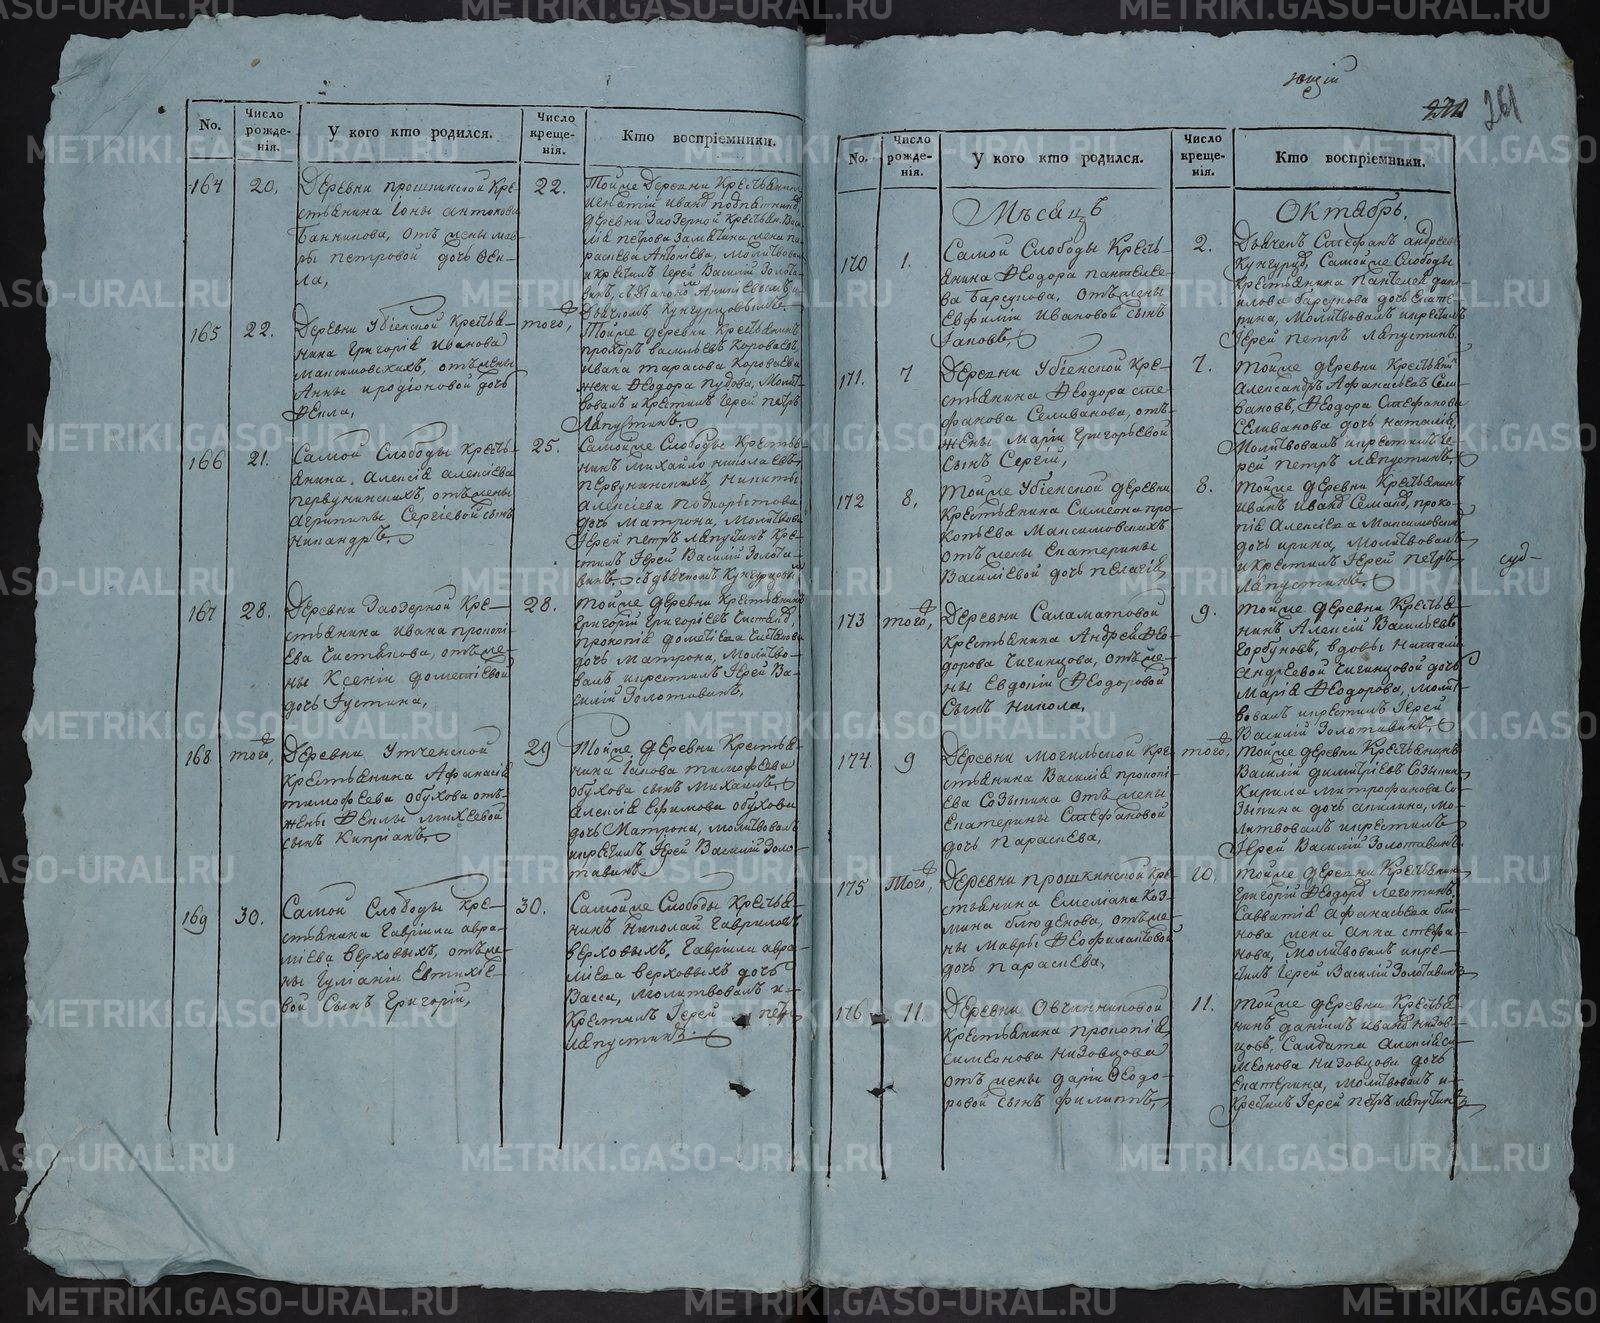 No.
Число рожденія.
У кого кто родился.
Число крещенія.
Кто воспріемники.
164
20,
Деревни прошкинской Кре-
стьянина Іоны антонова
Банникова, отъ жены мав-
ры петровой дочь Фек-
ла,
22.
Тойже деревни Крестьянинъ
деревни Заозерной Крестьян. Васи-
165
22.
Деревни Убіенской Крестья-
нина Григорія Иванова
Максимовскихъ, отъ жены
Анны иродіоновой дочь
Фекла,
того,
Тойже деревни Крестьянинъ
прохоръ васильевъ Короваевъ,
Ивана тарасова Короваева
жена Феодора пудова, Молит-
вовалъ и крестилъ Іерей петръ
Лапустинъ.
166
21.
Самой Слободы Кресть-
янина Алексія алексіева
первунинскихъ, отъ жены
агрипины Сергіевой сынъ
никандръ.
25.
Самойже Слободы Крестья-
нинъ Михайло николаевъ
первунинскихъ, никиты
Алексіева
дочь Матрона, Молитвовалъ
Іерей петръ Лапустинъ Кре-
стилъ Іерей Василій Золота-
винъ, съ дьячкомъ Кунгурцовымъ
167
28.
Деревни Заозерной Кре-
стьянина ивана прокопі-
ева Чистякова, отъ же-
ны Ксеніи дометіевой
дочь Густина,
28.
Тойже деревни Крестьянинъ
Григорій Григоріевъ Чистяковъ,
прокопія дометіева Чистякова
дочь матрона, Молитво-
валъ икрестилъ Іерей Ва-
силій Золотавинъ,
168
того,
Деревни Утченской
крестьянина Афанасія
тимофеева обухова отъ
жены Феклы михеевой
сынъ Кипріанъ,
29
Тойже деревни Крестья-
нина Іакова тимофеева
обухова сынъ Михаилъ,
алексія Ефимова обухова
дочь Матрона, молитвовалъ
икрестилъ Іерей Василій Золо-
тавинъ
169
30.
Самой Слободы Кре-
стьянина Гавріила авра-
міева верховыхъ, отъ же-
ны Гуліаніи Евтихіе-
вой Сынъ Григорій,
30.
Самойже Слободы Крестья-
нинъ Николай Гавриловъ
верховыхъ, Гавріила авра-
міева верховыхъ дочь
Васса, молитвовалъ и
Крестилъ Іерей петръ
Лапустинъ
261
No.
Число рожденія.
У кого кто родился.
Число крещенія.
Кто воспріемники.
Мѣсяцъ
Октябрь.
170
1.
Самой Слободы Кресть-
янина Феодора пантелее-
ва Барсукова, отъ жены
Евфиміи Ивановой сынъ
Іаковъ,
2.
Дьячекъ Стефанъ андреевъ
Кунгурцъ, Самойже Слободы
Крестьянина пантелея дан-
илова барсукова дочь Екате-
рина, Молитвовалъ икрестилъ
Іерей петръ Лапустинъ.
171.
7
Деревни Убіенской Кре-
стьянина Феодора сте-
фанова Селиванова, отъ
жены Маріи Григорьевой
Сынъ Сергій,
7.
Тойже деревни Крестьянинъ
Александръ Афанасьевъ Сели-
вановъ, Феодора Стефанова
Селиванова дочь наталія,
Молитвовалъ икрестилъ Іе-
рей петръ Лапустинъ.
172
8,
Тойже Убіенской деревни
крестьянина Симеона про-
копьева Максимовскихъ
отъ жены Екатерины
Василіевой дочь пелагія
8.
Тойже деревни Крестьянинъ
прокопія Алексіева Максимовскихъ
дочь ирина, Молитвовалъ
и Крестилъ Іерей петръ
Лапустинъ.
суд-
173
того,
Деревни Саламатовой
Крестьянина Андрея Фео-
дорова Чигинцова, отъ же-
ны Евдокіи Феодоровой
Сынъ Никола,
9.
Тойже деревни Крестья-
нинъ, Алексій Васильевъ
Горбуновъ, вдовы наталіи
андреевой Чигинцовой дочь
Марія Феодорова, молит-
вовалъ икрестилъ Іерей
Василій Золотавинъ,
174.
9
Деревни могильской Кре-
стьянина Василія прокопі-
ева Созыкина отъ жены
Екатерины Стефановой
дочь параскева,
того,
Тойже деревни Крестьянинъ
Василій димитріевъ Созыкинъ,
Кирила митрофанова Со-
зыкина дочь акилина, мо-
литвовалъ икрестилъ
Іерей Василій Золотавинъ.
175
Того,
Деревни прошкинской Кре-
стьянина Емеліана Коз-
мина блюденова, отъ же-
ны Мавры Феофилактовой
дочь параскева,
10,
Тойже деревни Крестьянинъ
Григорій Феодоровъ
Савватія афанасьева
жена анна стефа-
нова, молитвовалъ икре-
стилъ Іерей Василій Золотавинъ
176
11.
Деревни Овчинниковой
Крестьянина прокопія
симеонова Низовцова
отъ жены даріи Феодо-
ровой сынъ филиппъ,
11.
Тойже деревни Крестья-
нинъ даніилъ ивановъ низов-
цовъ, Салдата алексія Си-
меонова Низовцова дочь
Екатерина, молитвовалъ и
Крестилъ Іерей петръ Лапустинъ
METRIKI.GASO-URAL.RU